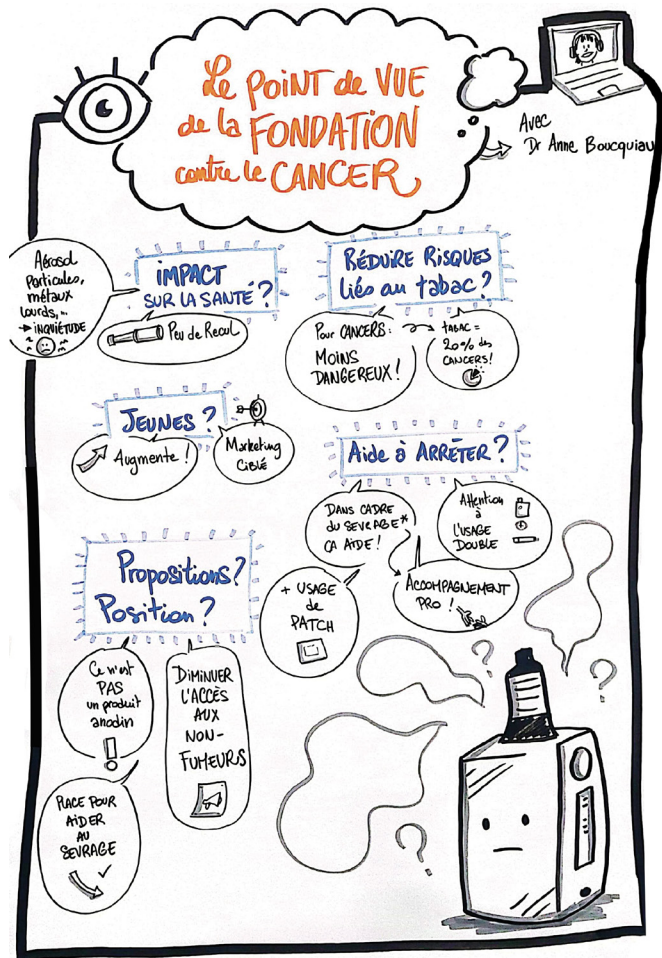 Le POINT de VUE
de la FONDATION
contre le CANCER
Avec
Dr Anne Boucquiau
Aérosol
Particules,
métaux
lourds,...
→ INQUIÉTUDE
IMPACT
SUR LA SANTÉ ?
Peu de Recul
RÉDUIRE RISQUES
liés au tabac ?
Pour CANCERS :
MOINS
DANGEREUX !
TABAC =
20% des
CANCERS !
JEUNES ?
Augmente !
Marketing
CIBLÉ
Aide à ARRÊTER ?
DANS CADRE
du SEVRAGE*
ÇA AIDE !
Attention
à
L'USAGE
DOUBLE
+ USAGE
de
PATCH
ACCOMPAGNEMENT
PRO !
Propositions ?
Position ?
Ce n'est
PAS
un produit
anodin
!
DIMINUER
L'ACCÈS
AUX
NON-
FUMEURS
PLACE POUR
AIDER
AU
SEVRAGE
?
?
?